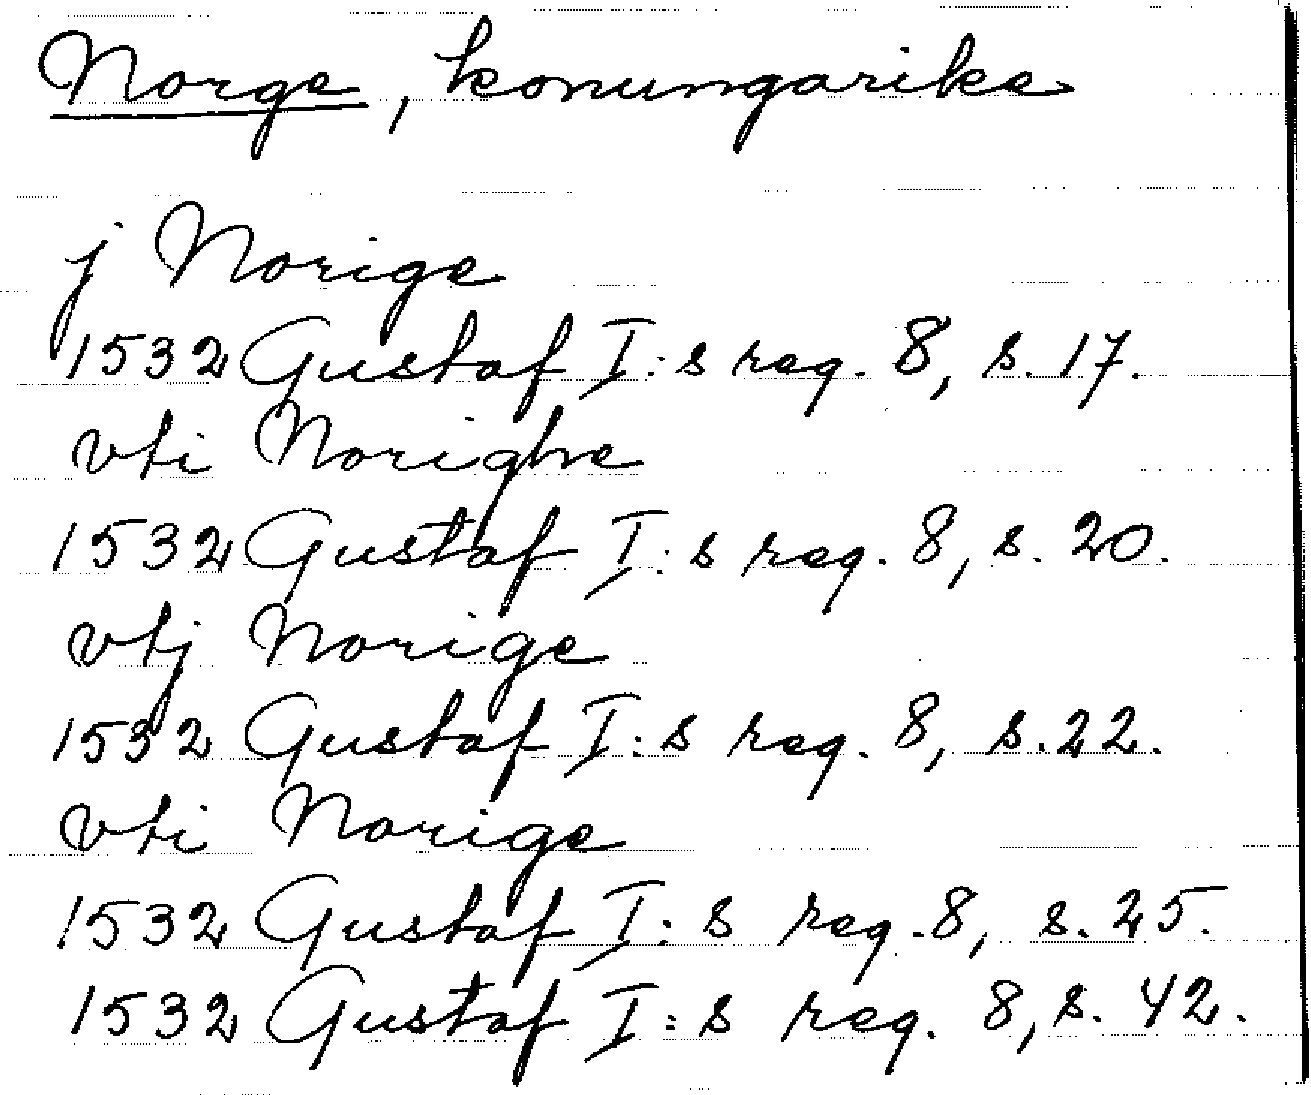 Norge, konungarike
j Norige
1532 Gustaf I:s reg. 8, s. 17.
vti Norighe
1532 Gustaf I:s reg. 8, s. 20.
vtj Norige
1532 Gustaf I:s reg. 8, s. 22.
vti Norige
1532 Gustaf I:s reg. 8, s. 25.
1532 Gustaf I:s reg. 8, s. 42.